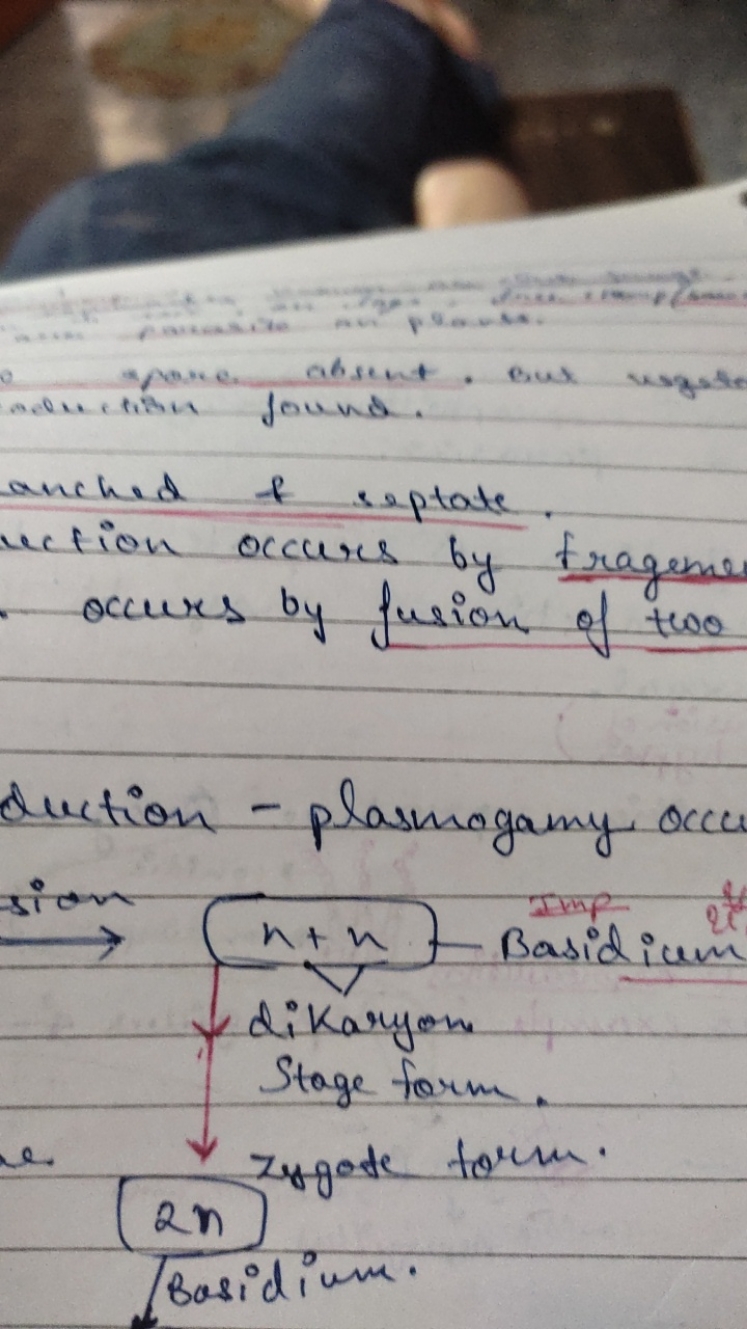 parasite on plants.
spore absent. But
oduction found.
anched & septate.
uction occurs by frageme
. occurs by fusion of two
duction - plasmogamy occu
sion
Imp
n+n - Basidium
dikaryon
Stage form.
Zygote form.
2n
Basidium.